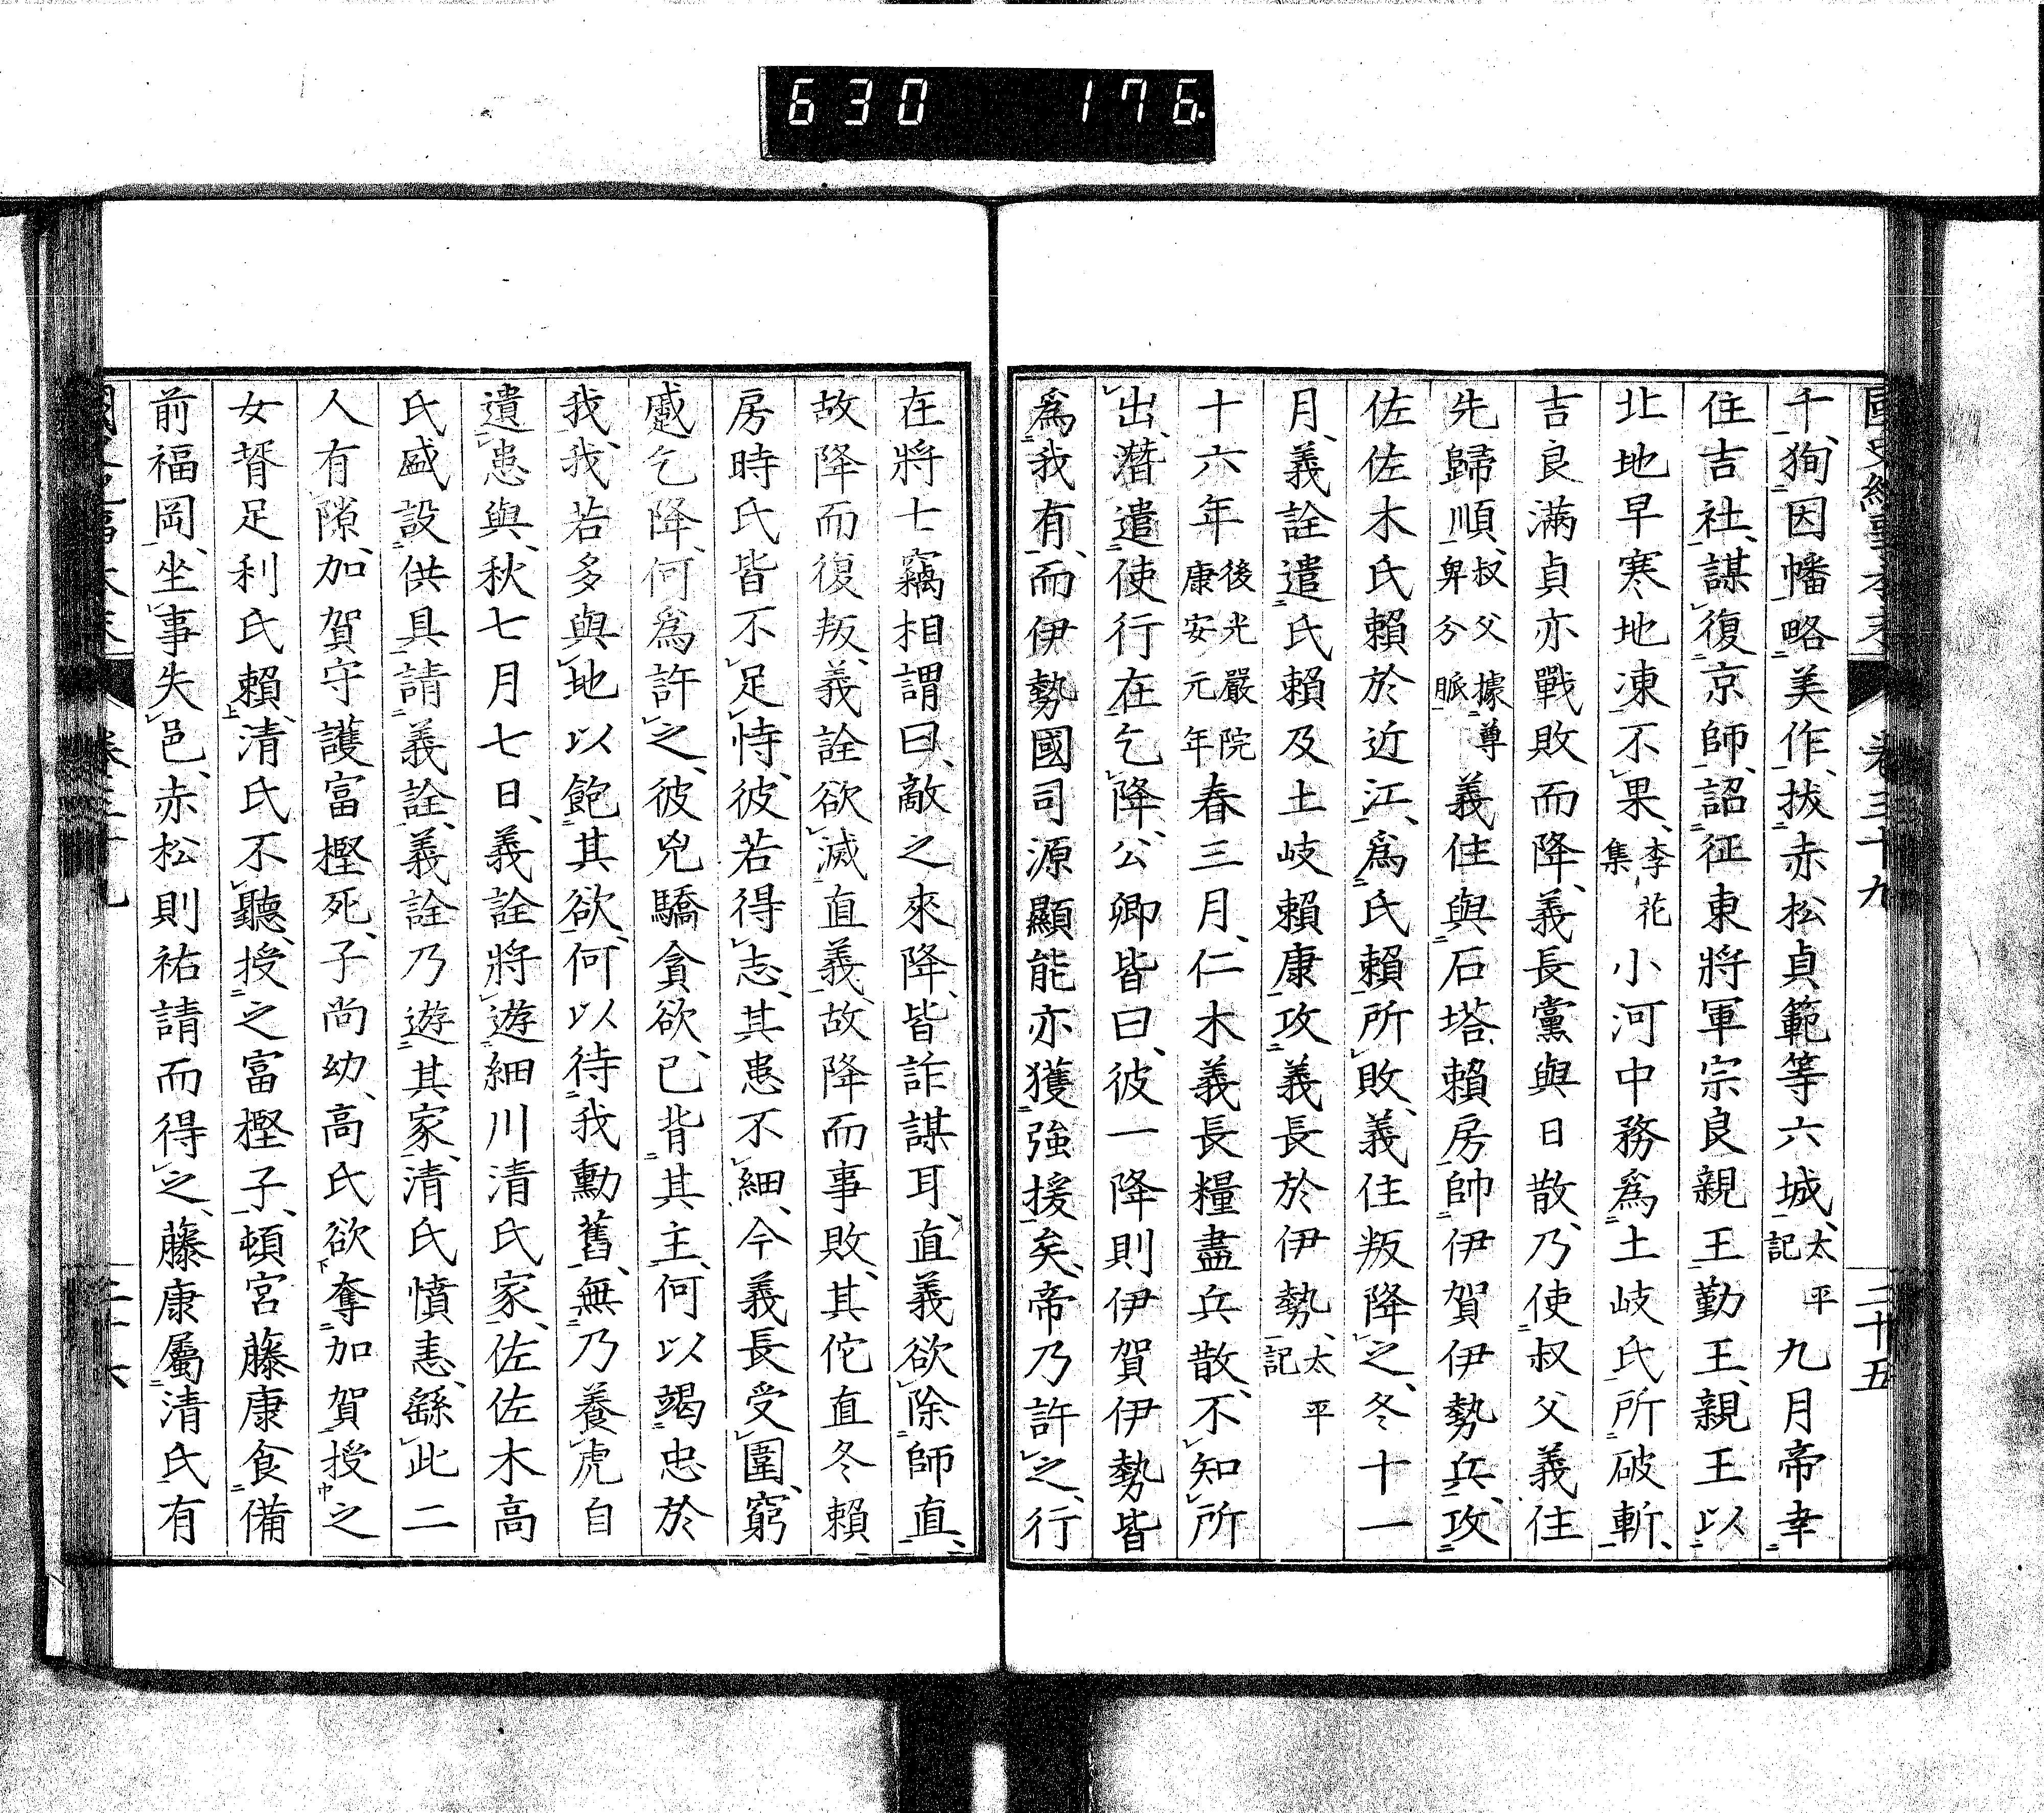 630 176
國史紀事本末 卷三十九 二十五
千、狥因幡略美作、拔赤松貞範等六城、太平記九月帝幸
住吉社、謀復京師、詔征東將軍宗良親王勤王、親王以
北地早寒地凍不果、李花集小河中務爲土岐氏所破斬、
吉良滿貞亦戰敗而降、義長黨與日散、乃使叔父義住
先歸順、叔父據尊卑分脈義住與石塔賴房帥伊賀伊勢兵、攻
佐佐木氏賴於近江、爲氏賴所敗、義住叛降之、冬十一
月、義詮遣氏賴及土岐賴康攻義長於伊勢、太平記
十六年後光嚴院康安元年春三月、仁木義長糧盡兵散、不知所
出、潛遣使行在乞降、公卿皆曰、彼一降則伊賀伊勢皆
爲我有、而伊勢國司源顯能亦獲強援矣、帝乃許之、行
在將士竊相謂曰、敵之來降、皆詐謀耳、直義欲除師直、
故降而復叛、義詮欲滅直義、故降而事敗、其佗直冬賴
房時氏皆不足恃、彼若得志、其患不細、今義長受圍、窮
蹙乞降、何爲許之、彼兇驕貪欲、已背其主、何以竭忠於
我、我若多與地以飽其欲、何以待我勳舊、無乃養虎自
遺患與、秋七月七日、義詮將遊細川清氏家、佐佐木高
氏盛設供具、請義詮、義詮乃遊其家、清氏憤恚、繇此二
人有隙、加賀守護富樫死、子尚幼、高氏欲奪加賀授之
女壻足利氏賴、清氏不聽、授之富樫子、頓宮藤康食備
前福岡、坐事失邑、赤松則祐請而得之、藤康屬清氏有
卷三十九 二十六